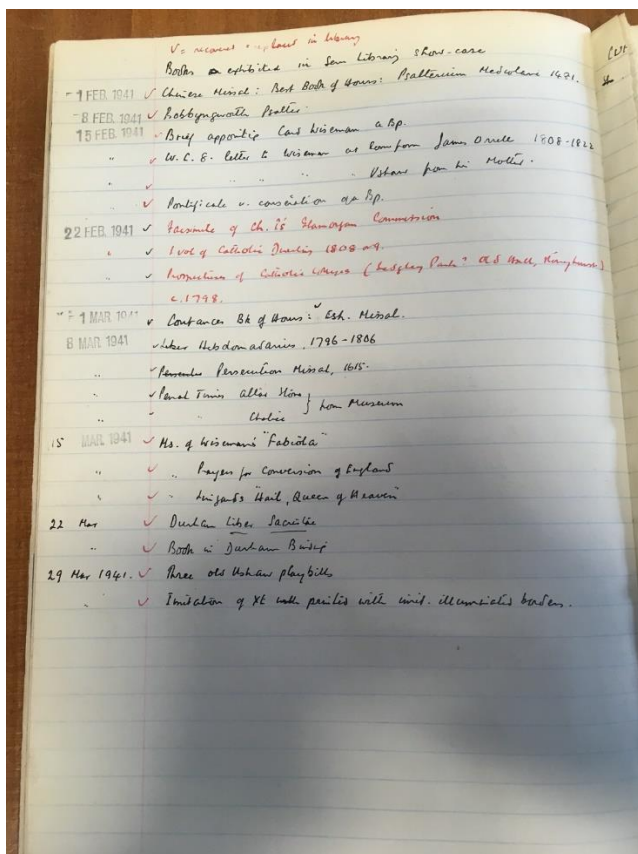 V = recovered & replaced in library
Books exhibited in Sem Library show-case
- 1 FEB. 1941 ✓ Chinese Missal: Best Book of Hours: Psalterium Mediolani 1471.
- 8 FEB. 1941 ✓ Bobbyngworth Psalter
15 FEB. 1941 Brief appointing Card Wiseman a Bp.
" ✓ W.C.E. letter to Wiseman at Rome from James Orrell 1808-1822
" ✓ " " " Ushaw from his Mother.
✓ Pontificale v. consecration of a Bp.
22 FEB. 1941 ✓ Facsimile of Ch. I's Glamorgan Commission
" ✓ 1 vol of Catholic 1808
" ✓ Prospectuses of Catholic Colleges (Sedgley Park: Old Hall, Stonyhurst)
c. 1798.
1 MAR. 1941 ✓ Coutances Bk of Hours: ✓ Esh. Missal.
8 MAR. 1941 ✓ Liber Hebdomadarius, 1796-1806
" ✓ Persecution Missal, 1615.
" ✓ Penal Times altar stone } from Museum
" ✓ " Chalice
15 MAR. 1941 ✓ Ms. of Wiseman's "Fabiola"
" ✓ " Prayers for Conversion of England
" ✓ " Lingard's "Hail, Queen of Heaven"
22 Mar ✓ Durham Liber Sacristae
" ✓ Book in Durham Binding
29 Mar 1941. ✓ Three old Ushaw playbills
" ✓ Imitation of Xt printed with illuminated borders.